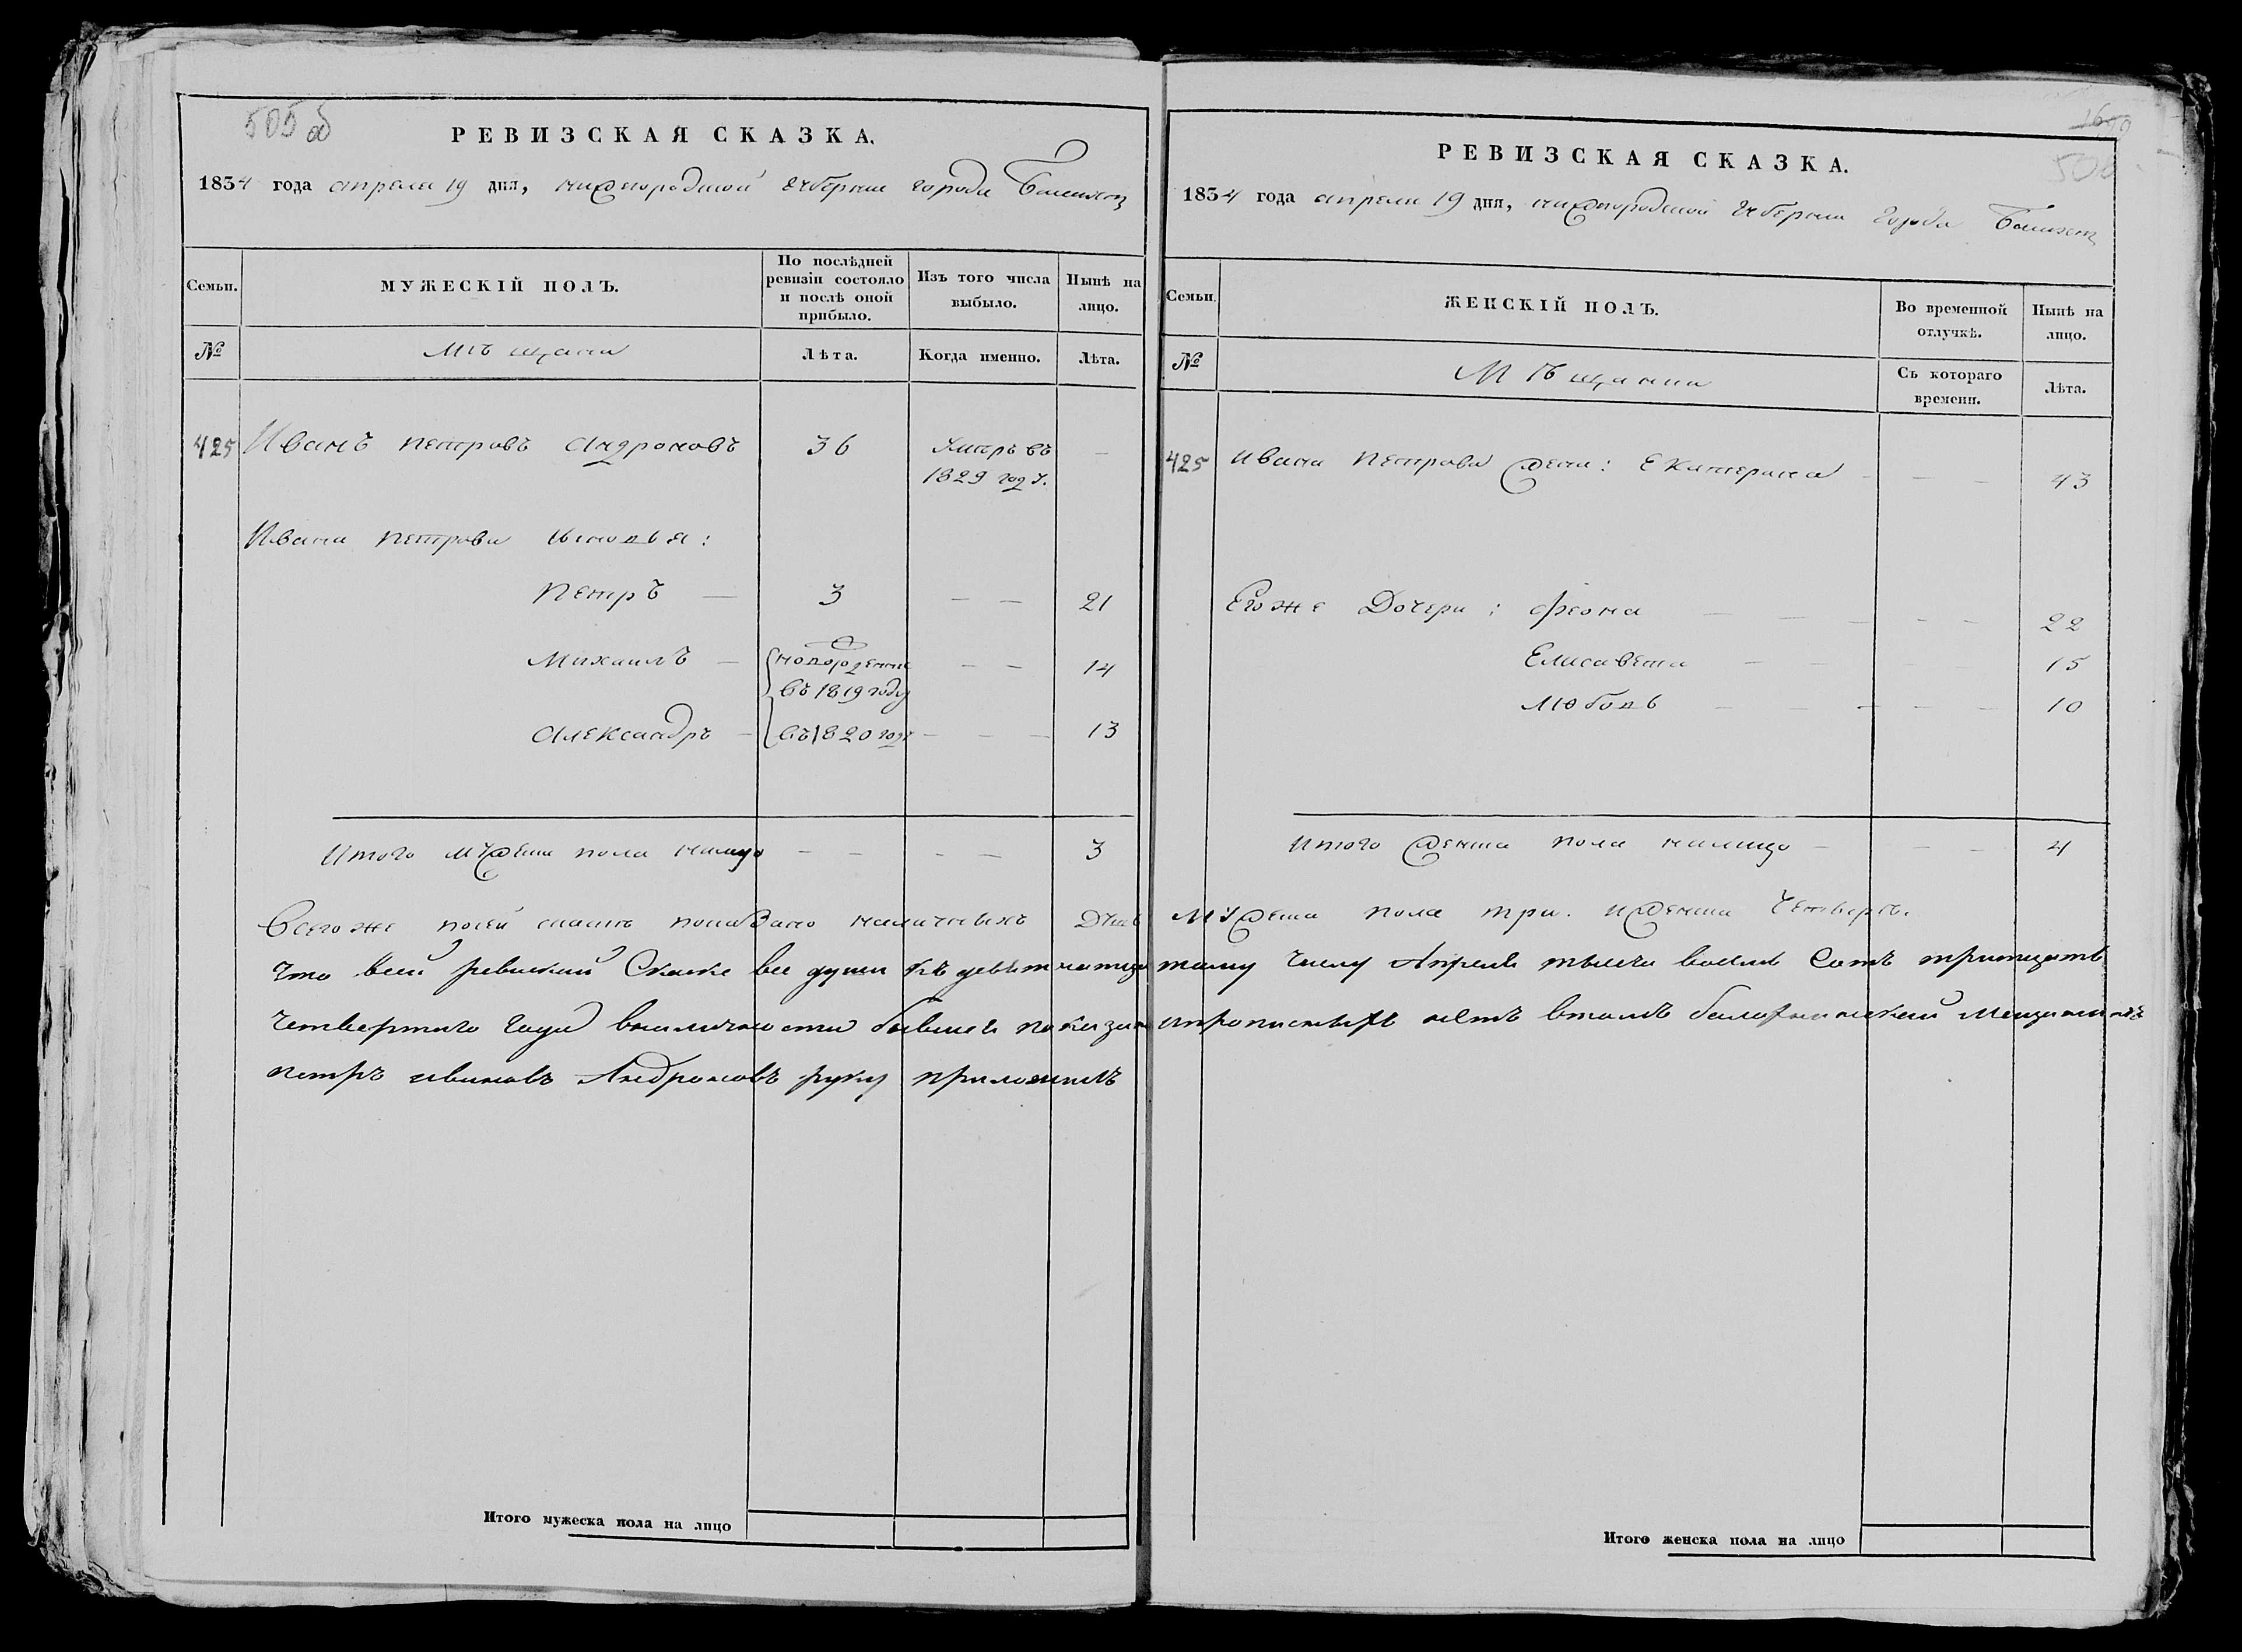 505 об
РЕВИЗСКАЯ СКАЗКА.
1834 года апреля 19 дня, нижегородской губернии города Балахны
Семьи.
МУЖЕСКІЙ ПОЛЪ.
По послѣдней ревизіи состояло и послѣ оной прибыло.
Изъ того числа выбыло.
Нынѣ на лицо.
№
Мѣщане
Лѣта.
Когда именно.
Лѣта.
425 Иванъ Петровъ Андроновъ 36 Умеръ въ —
1829 году.
Ивана Петрова сыновья:
Петръ — 3 — — 21
Михаилъ — новорожденны — — 14
въ 1819 году
Александръ — въ 1820 году — — — 13
Итого мужеска пола налицо — — — — 3
Всего же посей показано наличныхъ Душъ Мужеска пола три. и женска Четверо.
Что всей ревиской Скаске все души къ девятнатцатому числу Апреля тысеча восемь Сотъ тритцать
четвертого года вналичности бывшеи показаны прописныхъ нетъ втомъ мещанинъ
петръ ивановъ Андроновъ руку приложилъ
Итого мужеска пола на лицо
506
РЕВИЗСКАЯ СКАЗКА.
1834 года апреля 19 дня, нижегородской губернии города Балахны
Семьи.
ЖЕНСКІЙ ПОЛЪ.
Во временной отлучкѣ.
Нынѣ на лицо.
№
Мѣщанки
Съ котораго времени.
Лѣта.
425 Ивана Петрова жена: Екатерина — — — 43
Его же Дочери: Феона — — — — — 22
Елисавета — — — — 15
Любовь — — — — — 10
Итого женска пола налицо — — — 4
Итого женска пола на лицо